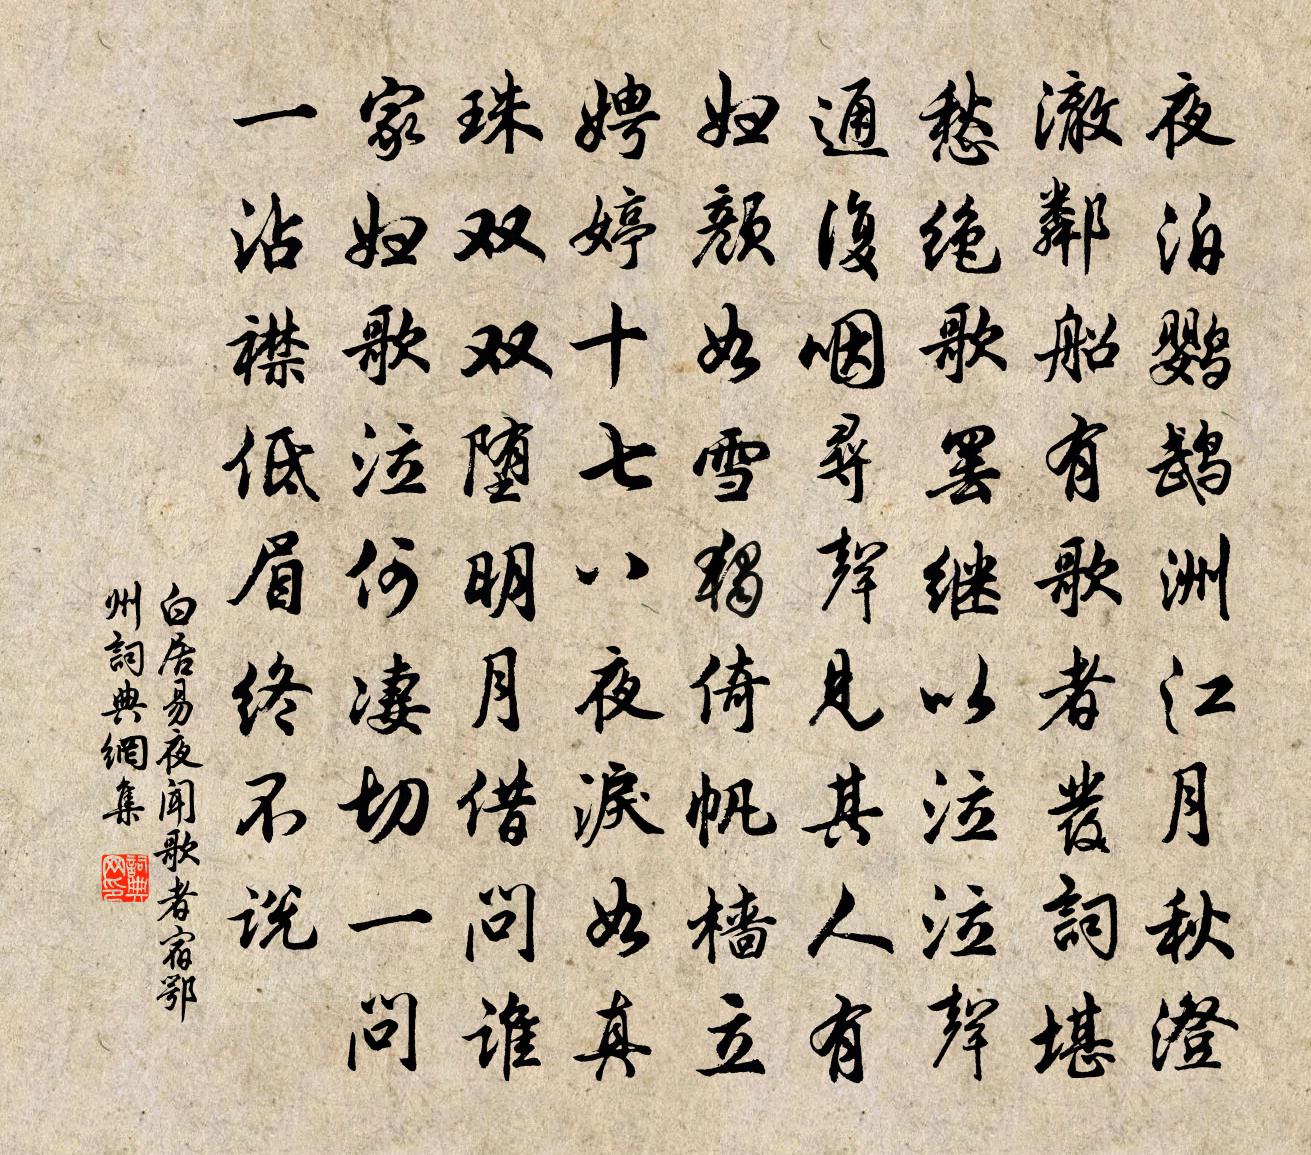 夜泊鹦鹉洲江月秋澄
澈鄰船有歌者發詞堪
愁绝歌罢继以泣泣聲
通復咽尋聲見其人有
妇颜如雪獨倚帆樯立
娉婷十七八夜淚如真
珠双双堕明月借问谁
家妇歌泣何凄切一问
一沾襟低眉终不说
白居易夜闻歌者宿鄂
州詞典網集
詞典网印